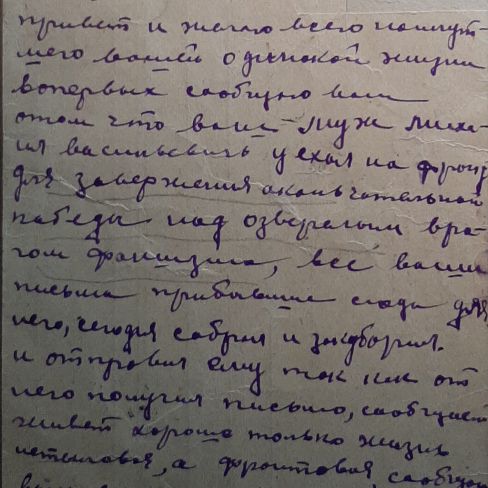 привет и желаю всего наилут-
шего вашей одинокой жизни
вопервых сообщаю вам
отом что ваш муж Миха-
ил васильевичь уехал на фронт
для завержения окончательной
победы над озверелым вра-
гом фашизма, все ваши
письма прибывшие сюда для
него, сегодня собрал и
и отправил ему так как от
него получил письмо, сообщает
живет хорошо только жизнь
а фронтовая, сообщаю